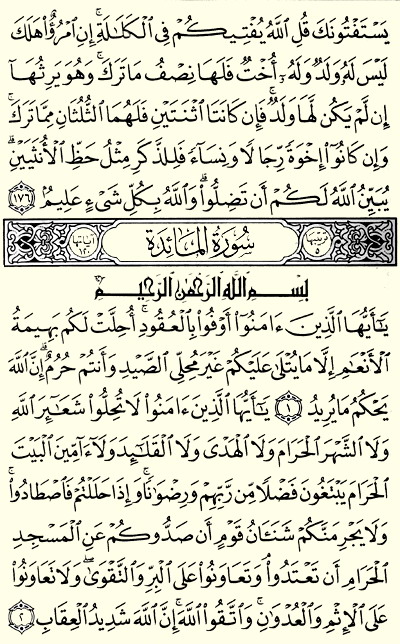 يَسْتَفْتُونَكَ قُلِ ٱللَّهُ يُفْتِيكُمْ فِى ٱلْكَلَـٰلَةِ ۚ إِنِ ٱمْرُؤٌا۟ هَلَكَ
لَيْسَ لَهُۥ وَلَدٌ وَلَهُۥٓ أُخْتٌ فَلَهَا نِصْفُ مَا تَرَكَ ۚ وَهُوَ يَرِثُهَآ
إِن لَّمْ يَكُن لَّهَا وَلَدٌ ۚ فَإِن كَانَتَا ٱثْنَتَيْنِ فَلَهُمَا ٱلثُّلُثَانِ مِمَّا تَرَكَ ۚ
وَإِن كَانُوٓا۟ إِخْوَةً رِّجَالًا وَنِسَآءً فَلِلذَّكَرِ مِثْلُ حَظِّ ٱلْأُنثَيَيْنِ ۗ
يُبَيِّنُ ٱللَّهُ لَكُمْ أَن تَضِلُّوا۟ ۗ وَٱللَّهُ بِكُلِّ شَىْءٍ عَلِيمٌۢ ١٧٦
ترتيبها ٥ سُورَةُ المَائدَة آياتها ١٢٠
بِسْمِ ٱللَّهِ ٱلرَّحْمَـٰنِ ٱلرَّحِيمِ
يَـٰٓأَيُّهَا ٱلَّذِينَ ءَامَنُوٓا۟ أَوْفُوا۟ بِٱلْعُقُودِ ۚ أُحِلَّتْ لَكُم بَهِيمَةُ
ٱلْأَنْعَـٰمِ إِلَّا مَا يُتْلَىٰ عَلَيْكُمْ غَيْرَ مُحِلِّى ٱلصَّيْدِ وَأَنتُمْ حُرُمٌ ۗ إِنَّ ٱللَّهَ
يَحْكُمُ مَا يُرِيدُ ١ يَـٰٓأَيُّهَا ٱلَّذِينَ ءَامَنُوا۟ لَا تُحِلُّوا۟ شَعَـٰٓئِرَ ٱللَّهِ
وَلَا ٱلشَّهْرَ ٱلْحَرَامَ وَلَا ٱلْهَدْىَ وَلَا ٱلْقَلَـٰٓئِدَ وَلَآ ءَآمِّينَ ٱلْبَيْتَ
ٱلْحَرَامَ يَبْتَغُونَ فَضْلًا مِّن رَّبِّهِمْ وَرِضْوَٰنًا ۚ وَإِذَا حَلَلْتُمْ فَٱصْطَادُوا۟ ۚ
وَلَا يَجْرِمَنَّكُمْ شَنَـَٔانُ قَوْمٍ أَن صَدُّوكُمْ عَنِ ٱلْمَسْجِدِ
ٱلْحَرَامِ أَن تَعْتَدُوا۟ ۘ وَتَعَاوَنُوا۟ عَلَى ٱلْبِرِّ وَٱلتَّقْوَىٰ ۖ وَلَا تَعَاوَنُوا۟
عَلَى ٱلْإِثْمِ وَٱلْعُدْوَٰنِ ۚ وَٱتَّقُوا۟ ٱللَّهَ ۖ إِنَّ ٱللَّهَ شَدِيدُ ٱلْعِقَابِ ٢